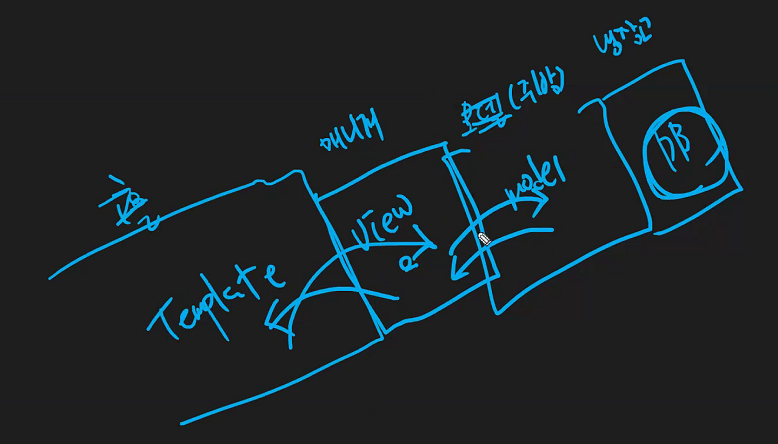 홀
매니저
(주방)
냉장고
Template
View
model
DB